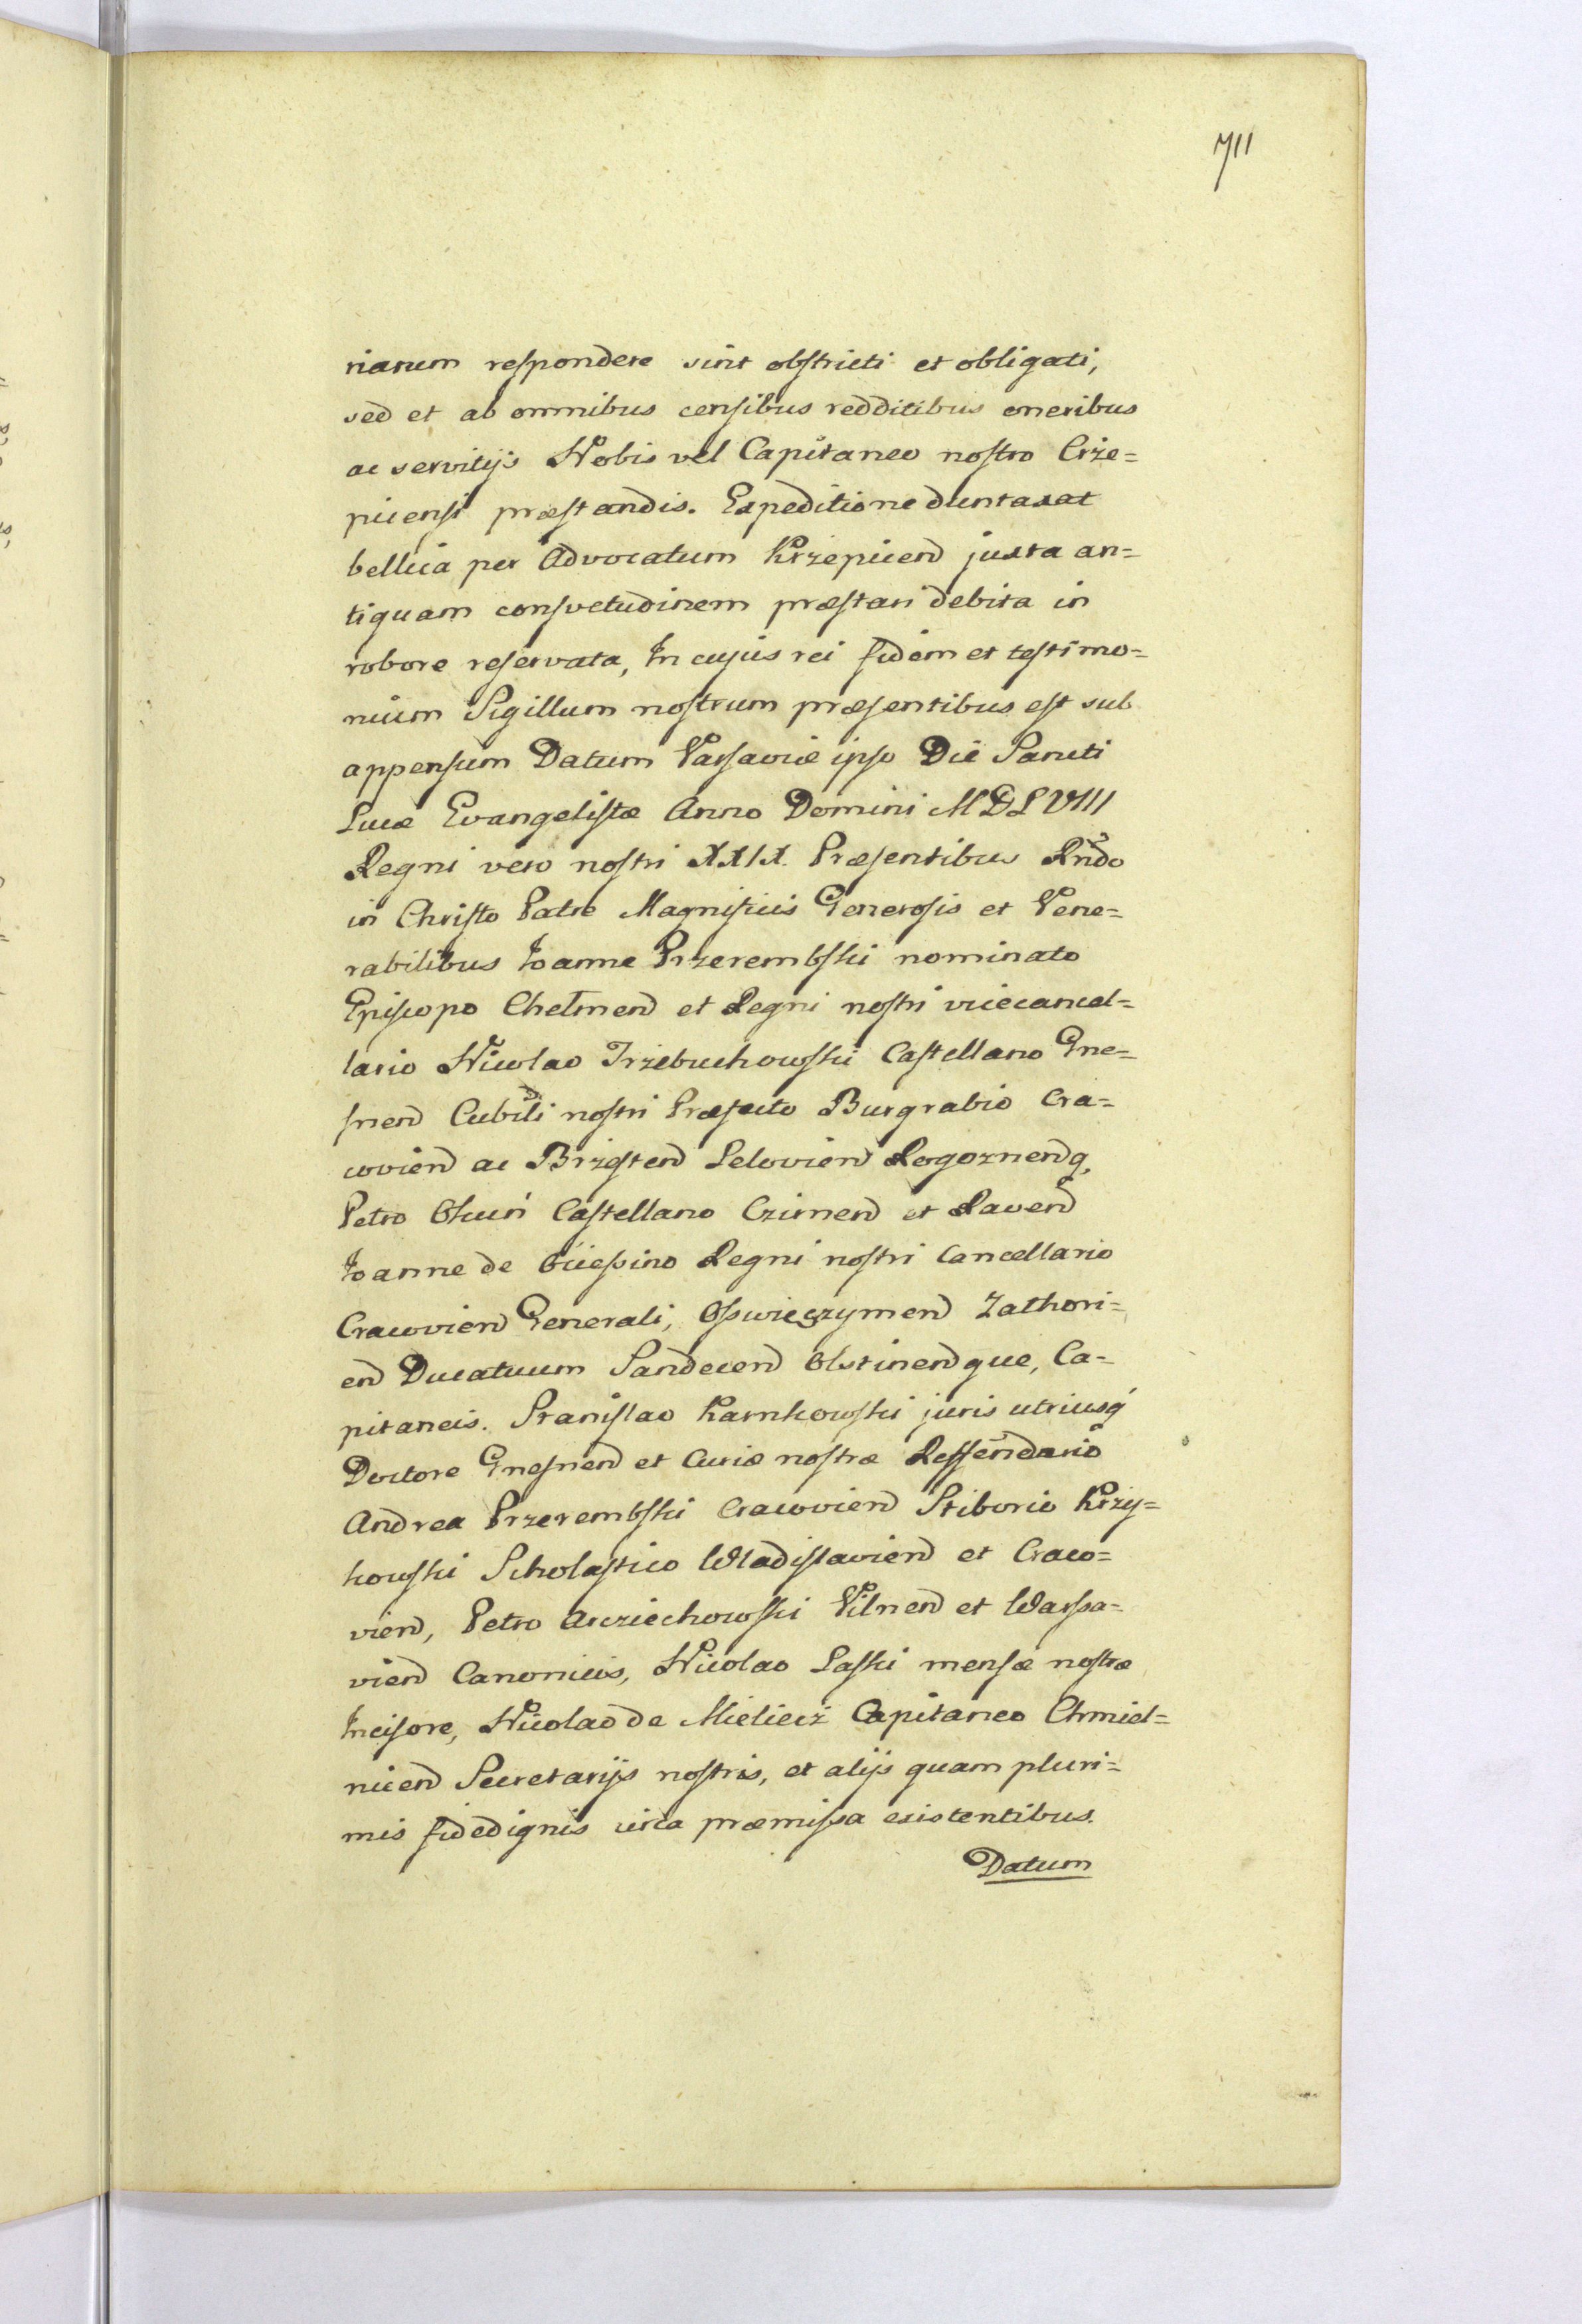 711
riarum respondere sint obstricti et obligati,
sed et ab omnibus censibus redditibus oneribus
ac servitijs Nobis vel Capitaneo nostro Crze=
picensi præstandis. Expeditione duntaxat
bellica per Advocatum Krzepicen juxta an=
tiquam consvetudinem præstari debita in
robore reservata, In cujus rei fidem et testimo=
nium Sigillum nostrum præsentibus est sub
appensum Datum Varsaviæ ipso Die Sancti
Lucæ Evangelistæ Anno Domini MDLVIII
Regni vero nostri XXIX. Præsentibus Rndo
in Christo Patre Magnificis Generosis et Vene=
rabilibus Joanne Przerembski nominato
Episcopo Chelmen et Regni nostri vicecancel=
lario Nicolao Trzebuchowski Castellano Gne=
snen Cubili nostri Præfecto Burgrabio Cra=
covien ac Brzesten Lelovien Rogoznenq,
Petro Castellano et Raven
Joanne de Ociessino Regni nostri Cancellario
Cracovien Generali, Osswieczymen Zathori=
en Ducatuum Sandecen Olstinenque, Ca=
pitaneis. Stanislao Karnkowski juris utriusq
Doctore Gnesnen et Curiæ nostræ Refferendario
Andrea Przerembski Cracovien Stiborio Krzy=
kowski Scholastico Wladislavien et Craco=
vien, Petro Arcziechowski Vilnen et Warssa=
vien Canonicis, Nicolao Laski mensæ nostræ
Incisore, Nicolao de Mieliecz Capitaneo Chmiel=
nicen Secretarijs nostris, et alijs quam pluri=
mis fidedignis circa præmissa existentibus.
Datum